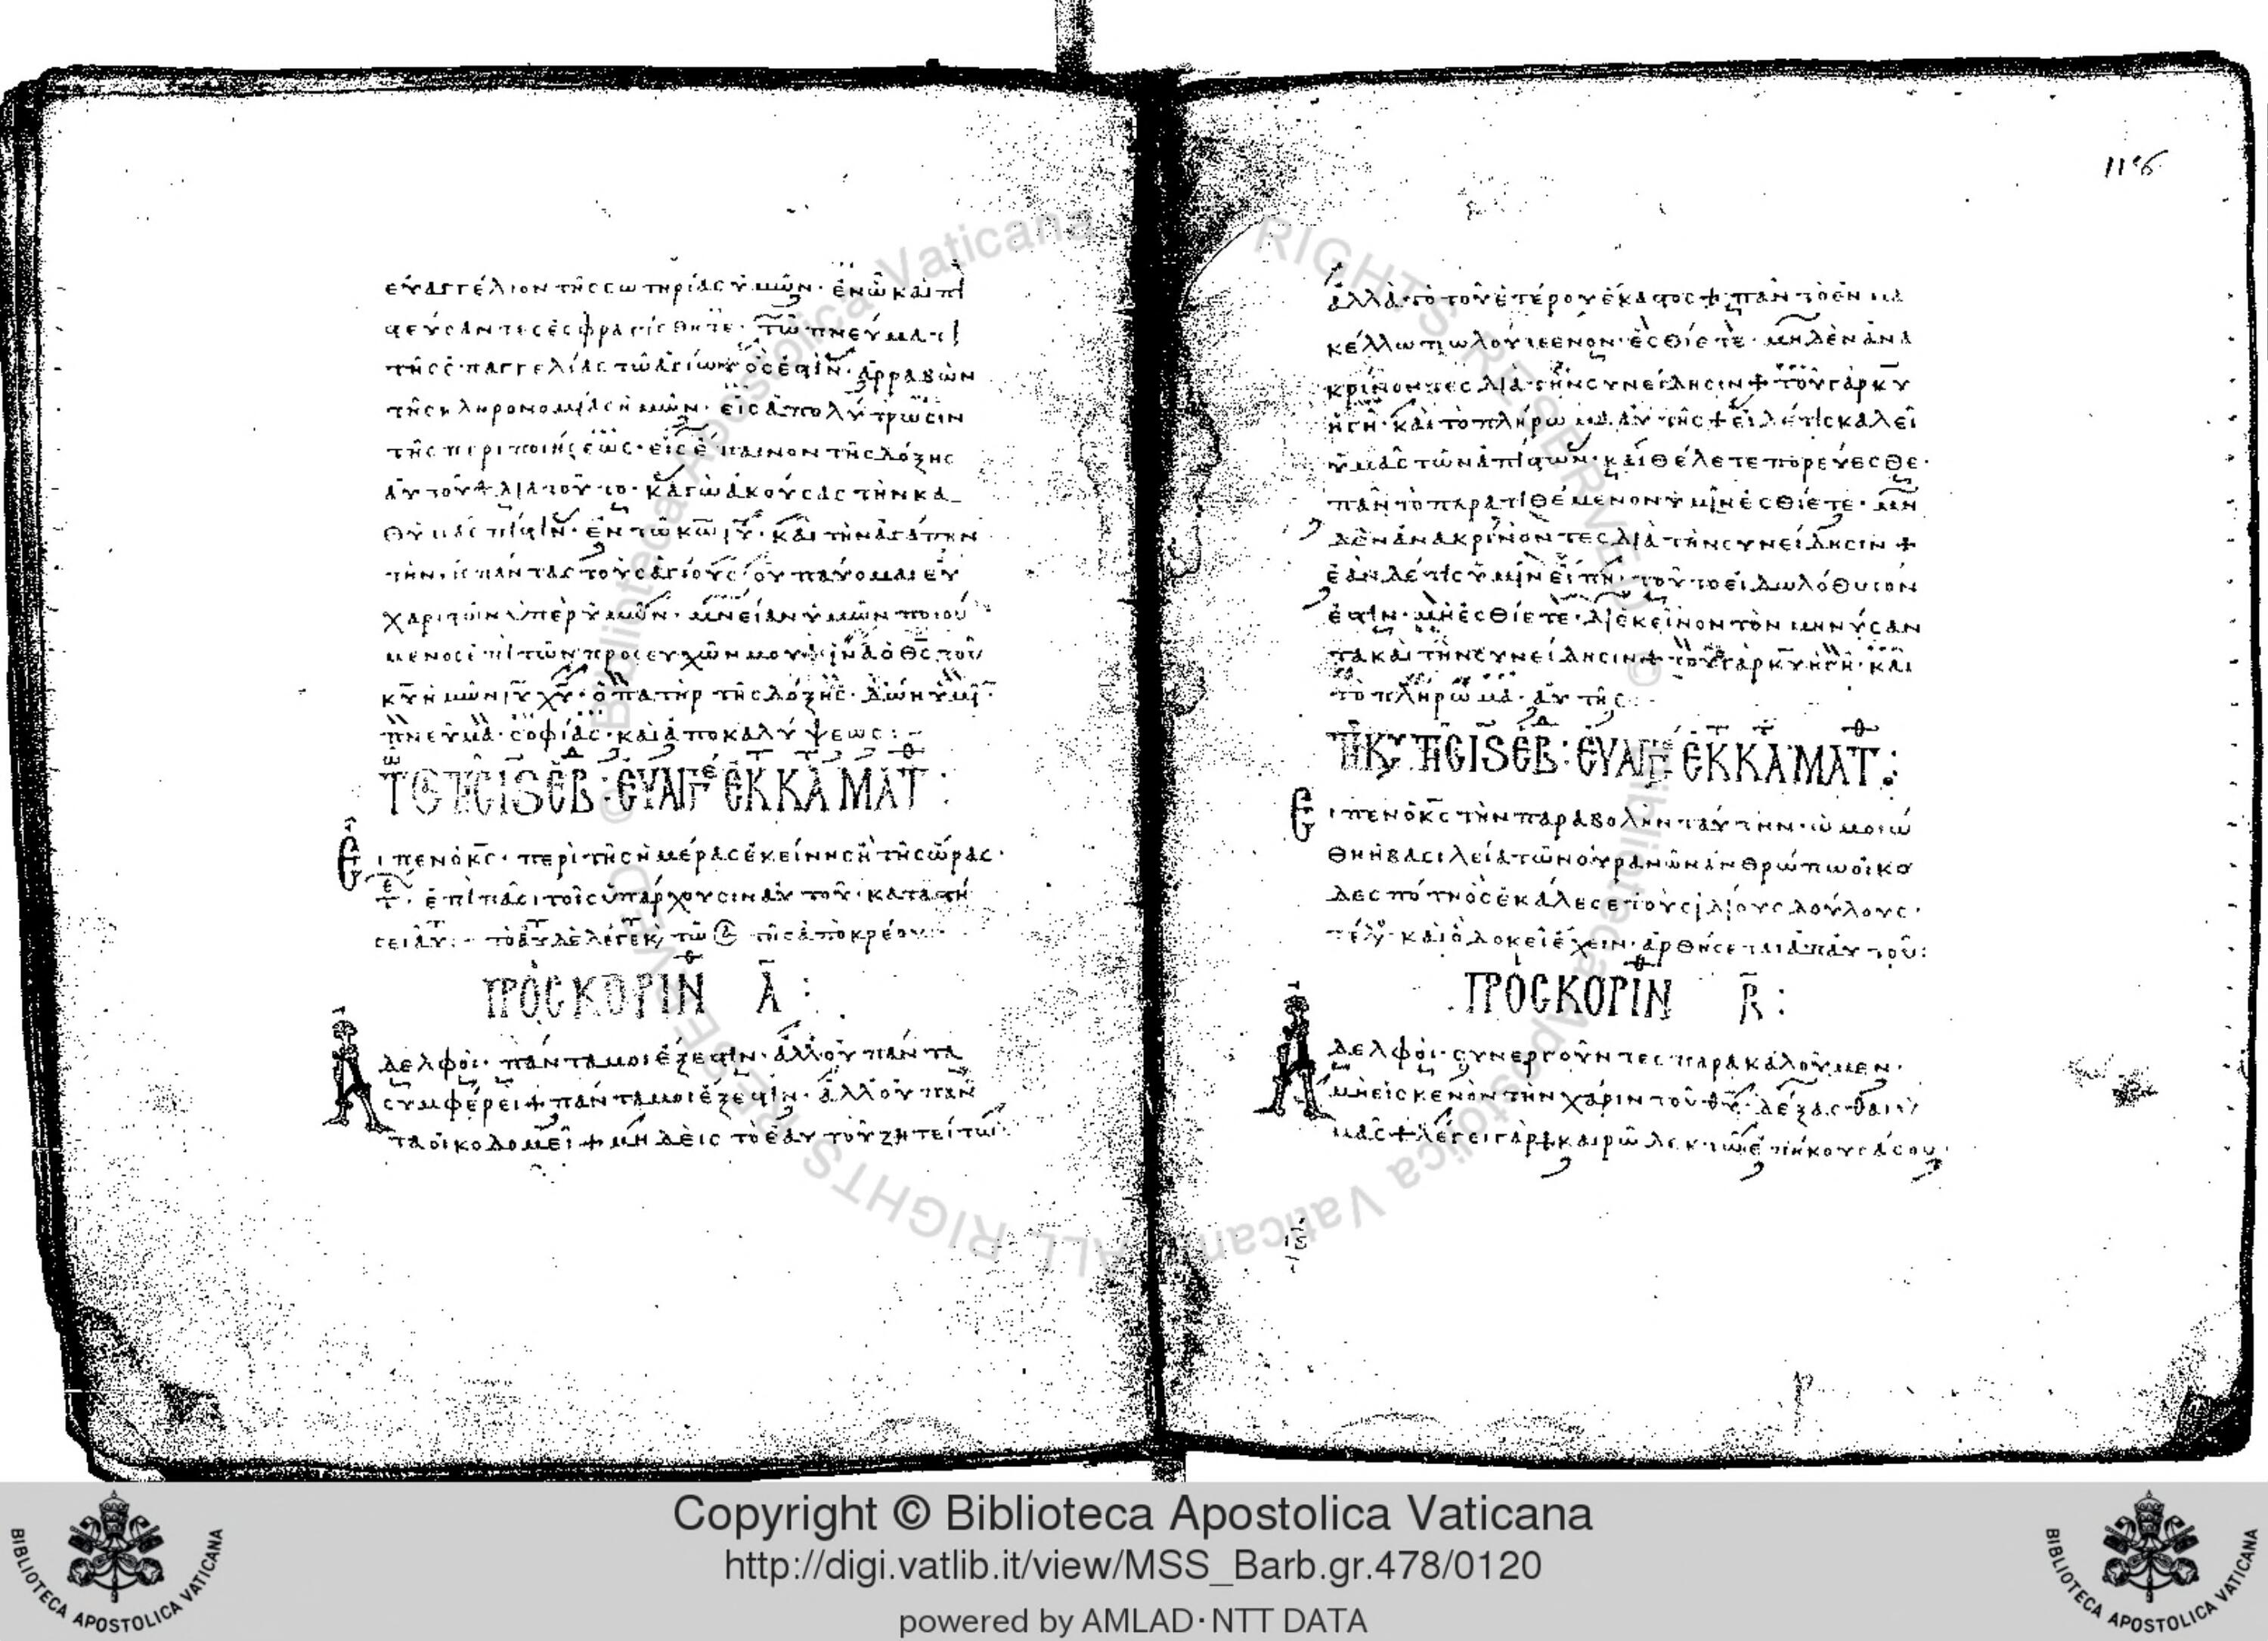 εὐαγγέλιον τῆς σωτηρίας ὑμῶν· ἐν ὧ καὶ πι
στεύσαντες ἐσφραγίσθητε· τῶ πνεύματι
τῆς ἐπαγγελίας τῶ ἁγίω· ὅς ἐστιν· ἀρραβὼν
τῆς κληρονομίας ἡμῶν· εἰς ἀπολύτρωσιν
τῆς περιποιήσεως· εἰς ἔπαινον τῆς δόξης
αὐτοῦ + διατοῦτο· κἀγὼ ἀκούσας τὴν κα
θ' ὑμᾶς πίστιν· ἐν τῶ κω ιυ· καὶ τὴν ἀγάπην
τὴν εἰς πάντας τοὺς ἁγίους· οὐ παύομαι εὐ
χαριστῶν ὑπὲρ ὑμῶν· μνείαν ὑμῶν ποιού
μενος ἐπὶ τῶν προσευχῶν μου + ἵνα ὁ θς τοῦ
κυ ἡμῶν ιυ χυ· ὁ πατὴρ τῆς δόξης· δώη ὑμῖ
πνεῦμα σοφίας· καὶ ἀποκαλύψεως:
ΕΚ ΚΑ ΜΑΤ:
Εἶπεν ὁ κς· περὶ τῆς ἡμέρας ἐκείνης ἢ τῆς ὥρας·
ἐπὶ πᾶσι τοῖς ὑπάρχουσιν αὐτοῦ· καταστή
σει αὐτ: τῆς ἀπόκρεου:
ΠΡΟΣ ΚΟΡΙΝ Α:
Ἀδελφοὶ· πάντα μοι ἔξεστιν· ἀλλ' οὐ πάντα
συμφέρει + πάντα μοι ἔξεστιν· ἀλλ' οὐ πάν
τα οἰκοδομεῖ + μηδεὶς τὸ ἑαυτοῦ ζητείτω·
116
ἀλλὰ τὸ τοῦ ἑτέρου ἕκαστος + πᾶν τὸ ἐν μα
κέλλω πωλούμενον· ἐσθίετε· μηδὲν ἀνα
κρίνοντες διὰ τὴν συνείδησιν + τοῦ γὰρ κυ
ἡ γῆ· καὶ τὸ πλήρωμα αὐτῆς + εἰ δέ τις καλεῖ
ὑμᾶς τῶν ἀπίστων· καὶ θέλετε πορεύεσθε·
πᾶν τὸ παρατιθέμενον ὑμῖν ἐσθίετε· μη
δὲν ἀνακρίνοντες διὰ τὴν συνείδησιν +
ἐὰν δέ τις ὑμῖν εἴπη· τοῦτο εἰδωλόθυτον
ἐστιν· μὴ ἐσθίετε· δι' ἐκεῖνον τὸν μηνύσαν
τα καὶ τὴν συνείδησιν + τοῦ γὰρ κυ ἡ γῆ· καὶ
τὸ πλήρωμα· αὐτῆς:
ΕΚ ΚΑ ΜΑΤ:
Εἶπεν ὁ κς τὴν παραβολὴν ταύτην· ὡμοιώ
θη ἡ βασιλεία τῶν οὐρανῶν ἀνθρώπω οἰκο
δεσπότη ὃς ἐκάλεσε τοὺς ἰδίους δούλους·
καὶ ὃ δοκεῖ ἔχειν· ἀρθήσεται ἀπ' αὐτοῦ:
ΠΡΟΣ ΚΟΡΙΝ Β:
Ἀδελφοὶ· συνεργοῦντες παρακαλοῦμεν·
μὴ εἰς κενὸν τὴν χάριν τοῦ θυ· δέξασθαι ὑ
μᾶς + λέγει γάρ + καιρῶ δεκτῶ ἐπήκουσά σου·
Copyright © Biblioteca Apostolica Vaticana
http://digi.vatlib.it/view/MSS_Barb.gr.478/0120
powered by AMLAD·NTT DATA
BIBLIOTECA APOSTOLICA VATICANA
BIBLIOTECA APOSTOLICA VATICANA